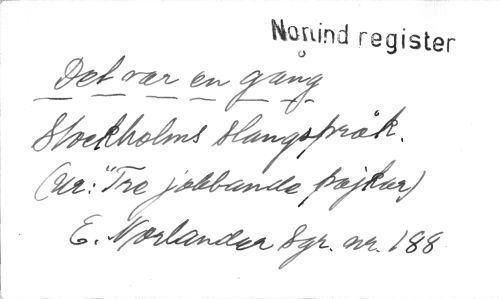 Norlind register
Det var en gång
Stockholms slangspråk.
(ur: "Tre jobbande pojkar)
E. Norlander Sgr. nr. 188